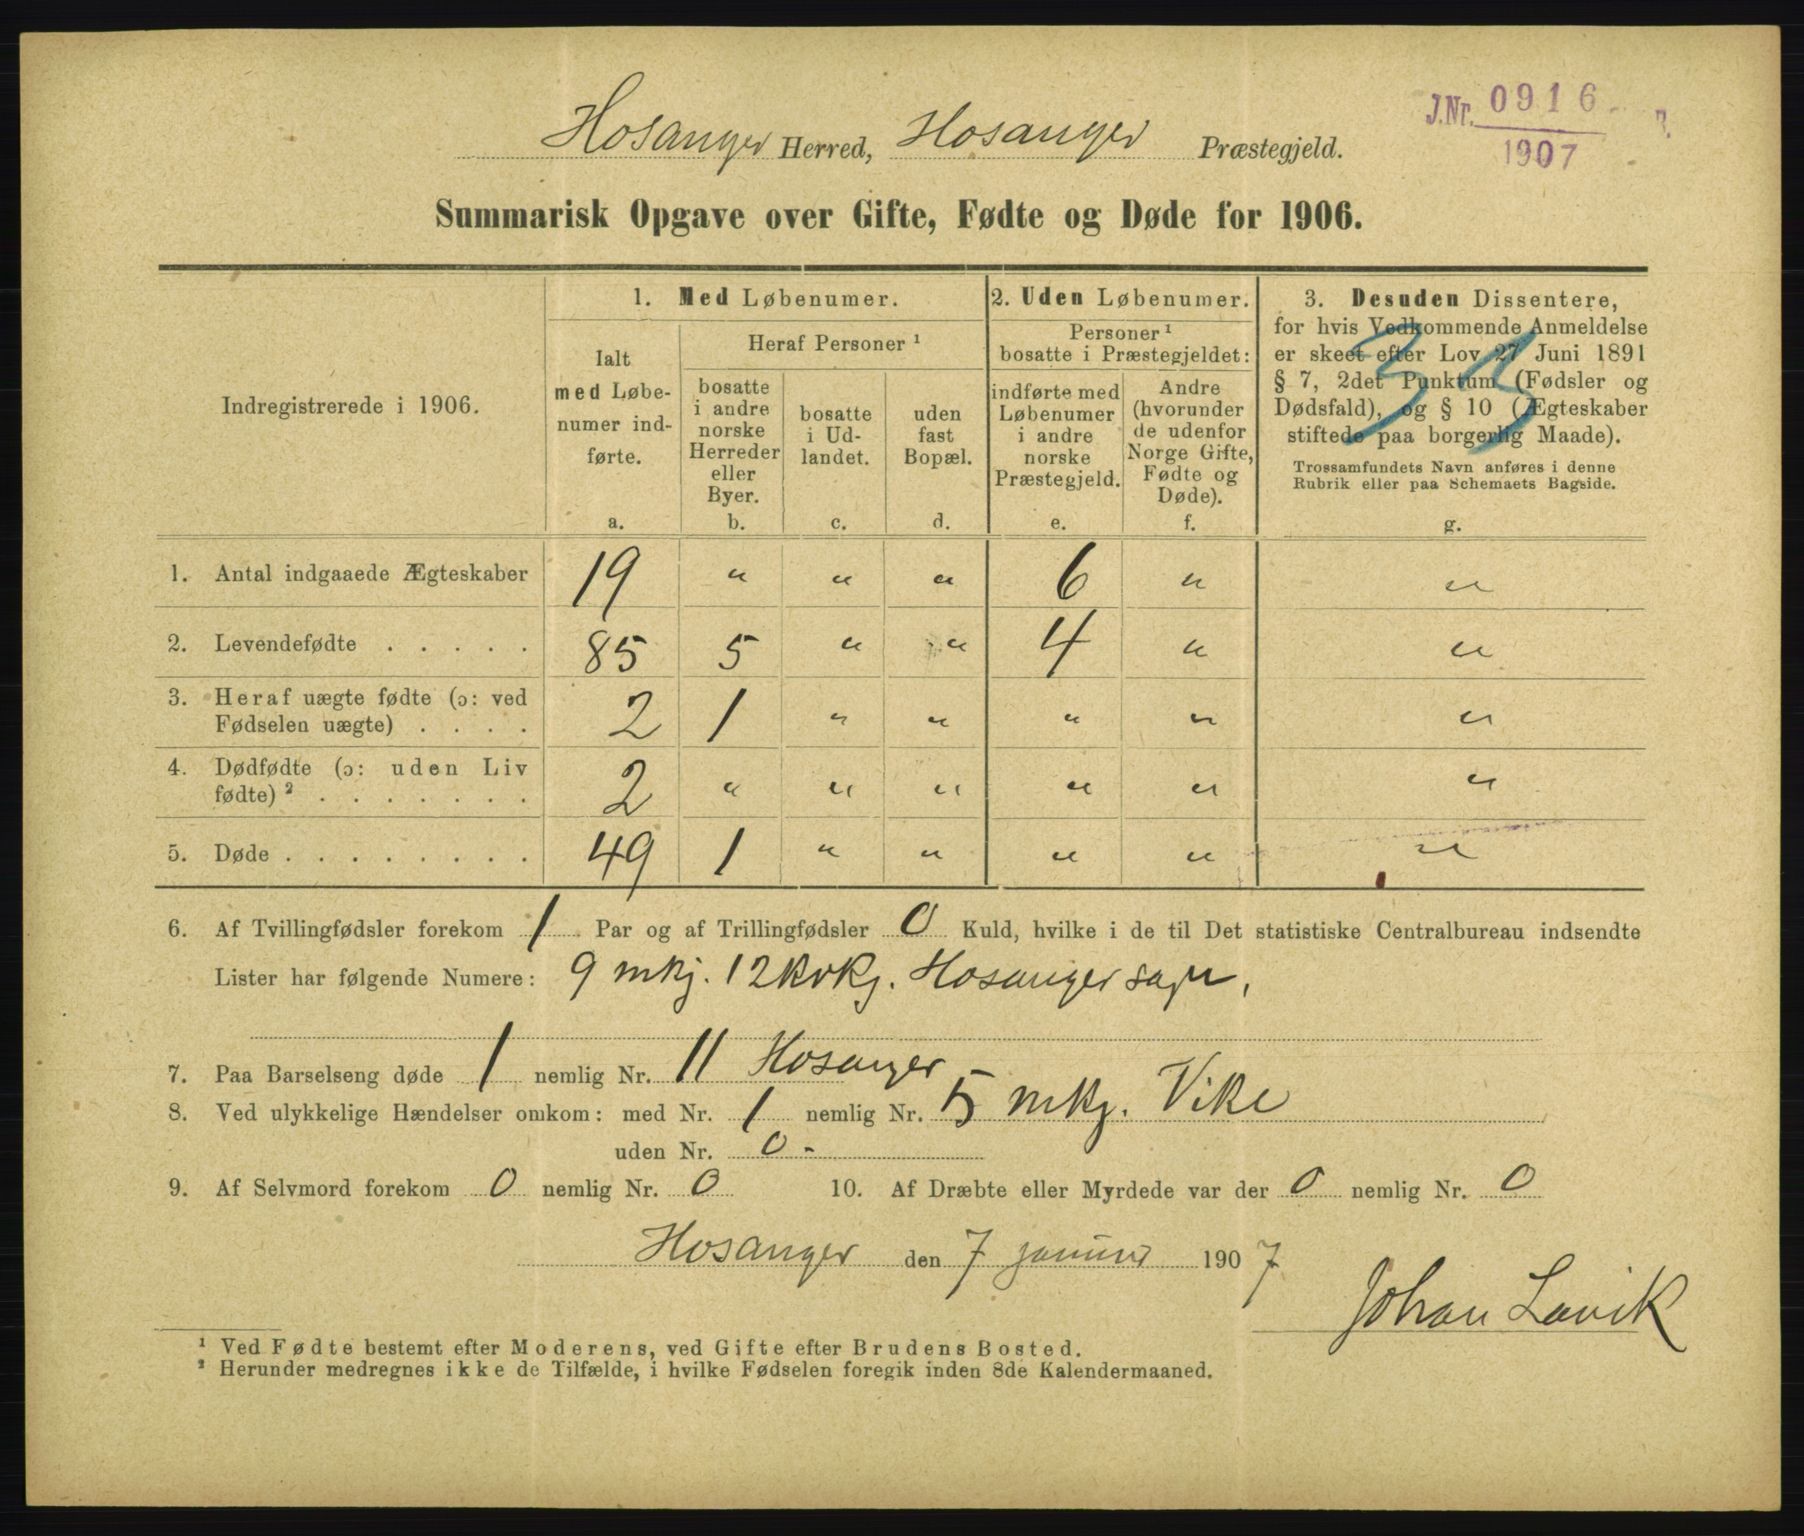 J.Nr. 0916
1907
Hosanger Herred, Hosanger Præstegjeld.
Summarisk Opgave over Gifte, Fødte og Døde for 1906.
Indregistrerede i 1906.
1. Med Løbenumer.
Ialt
med Løbe-
numer ind-
førte.
a.
Heraf Personer ¹
bosatte
i andre
norske
Herreder
eller
Byer.
b.
bosatte
i Ud-
landet.
c.
uden
fast
Bopæl.
d.
2. Uden Løbenumer.
Personer ¹
bosatte i Præstegjeldet:
indførte med
Løbenumer
i andre
norske
Præstegjeld.
e.
Andre
(hvorunder
de udenfor
Norge Gifte,
Fødte og
Døde).
f.
3. Desuden Dissentere,
for hvis Vedkommende Anmeldelse
er skeet efter Lov 27 Juni 1891
§ 7, 2det Punktum (Fødsler og
Dødsfald), og § 10 (Ægteskaber
stiftede paa borgerlig Maade).
Trossamfundets Navn anføres i denne
Rubrik eller paa Schemaets Bagside.
g.
1. Antal indgaaede Ægteskaber 19 " " " 6 " "
2. Levendefødte . . . . . 85 5 " " 4 " "
3. Heraf uægte fødte (ɔ: ved
Fødselen uægte) . . . . 2 1 " " " " "
4. Dødfødte (ɔ: uden Liv
fødte) ² . . . . . . . 2 " " " " " "
5. Døde . . . . . . . . 49 1 " " " " "
6. Af Tvillingfødsler forekom 1 Par og af Trillingfødsler 0 Kuld, hvilke i de til Det statistiske Centralbureau indsendte
Lister har følgende Numere: 9 mkj. 12 kvkj. Hosanger sogn,
7. Paa Barselseng døde 1 nemlig Nr. 11 Hosanger
8. Ved ulykkelige Hændelser omkom: med Nr. 1 nemlig Nr. 5 mkj. Vike
uden Nr. 0 -
9. Af Selvmord forekom 0 nemlig Nr. 0 10. Af Dræbte eller Myrdede var der 0 nemlig Nr. 0
Hosanger den 7 januar 1907
Johan Lavik
¹ Ved Fødte bestemt efter Moderens, ved Gifte efter Brudens Bosted.
² Herunder medregnes ikke de Tilfælde, i hvilke Fødselen foregik inden 8de Kalendermaaned.